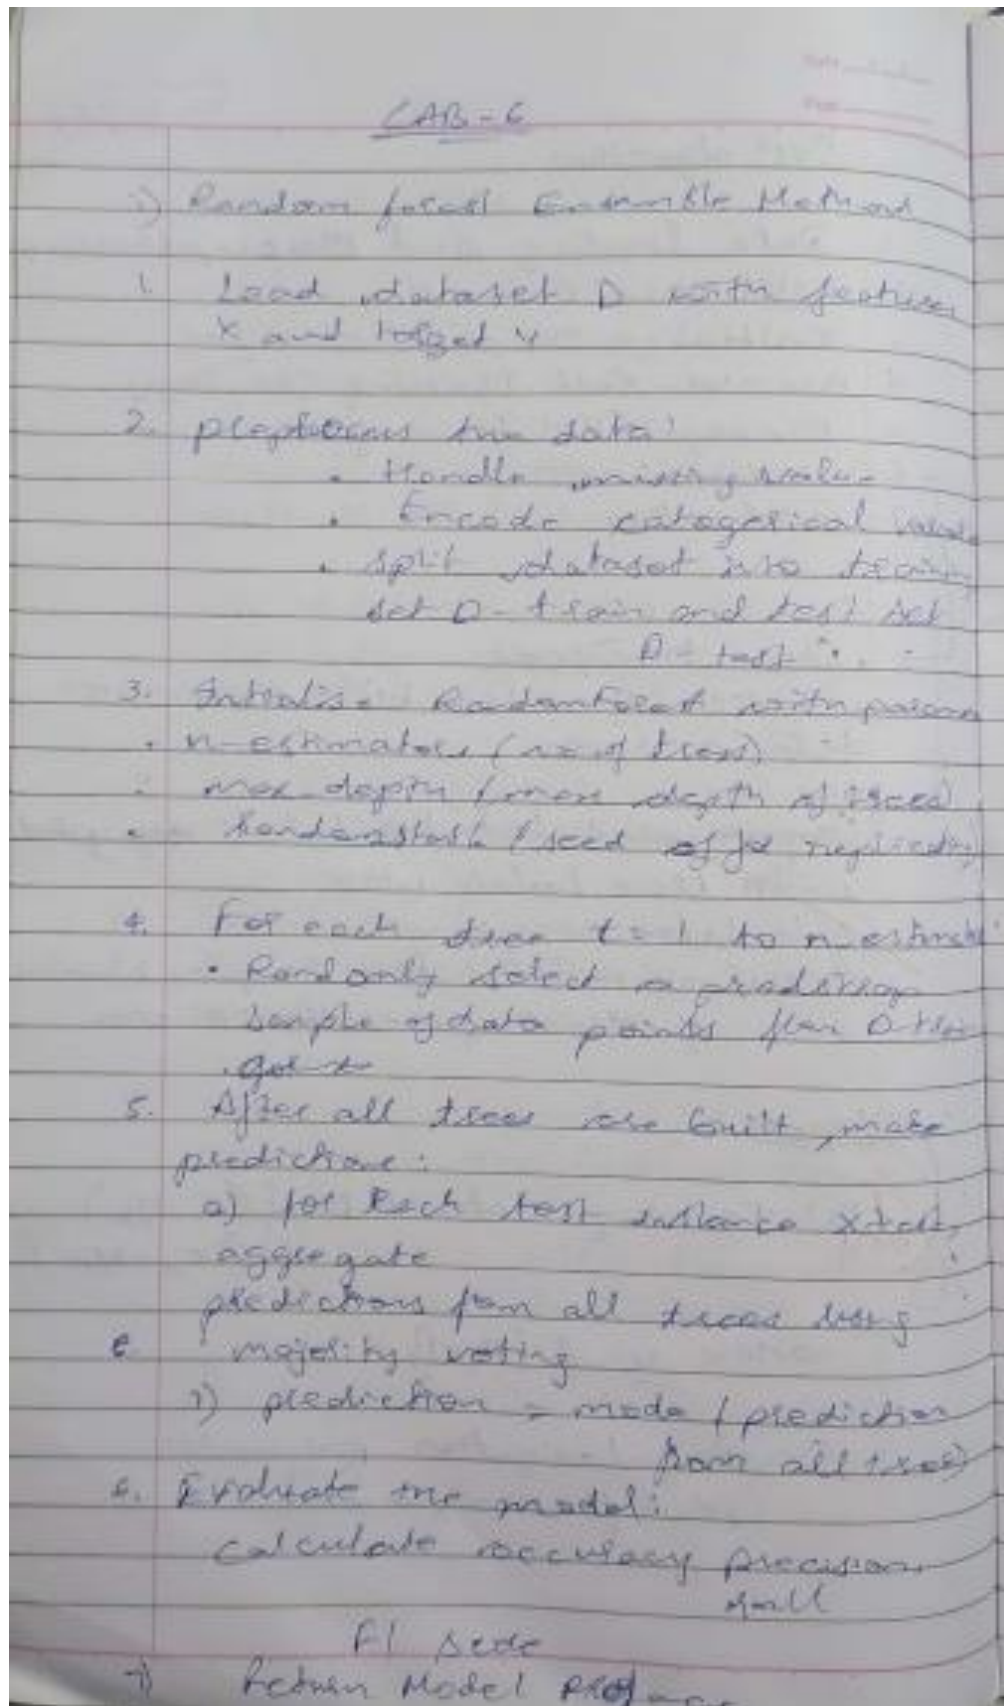 LAB-6
i) Random forest Ensemble Method
1. Load dataset D with features
X and target Y
2. preprocess the data:
• Handle missing value
• Encode categorical
• split dataset into training
set D-train and test set
D-test
3. Initialise RandomForest with
• n-estimators (no of trees)
• max-depth (max depth of trees)
• Randomstate (seed of for
4. For each tree t=1 to
• Randomly select a
sample of data points from
5. After all trees are built, make
predictions:
a) for Each test instance X-test,
aggregate
predictions from all trees using
majority voting
i) prediction = mode (prediction
from all trees)
6. Evaluate the model:
calculate accuracy precision
F1
7) Return Model